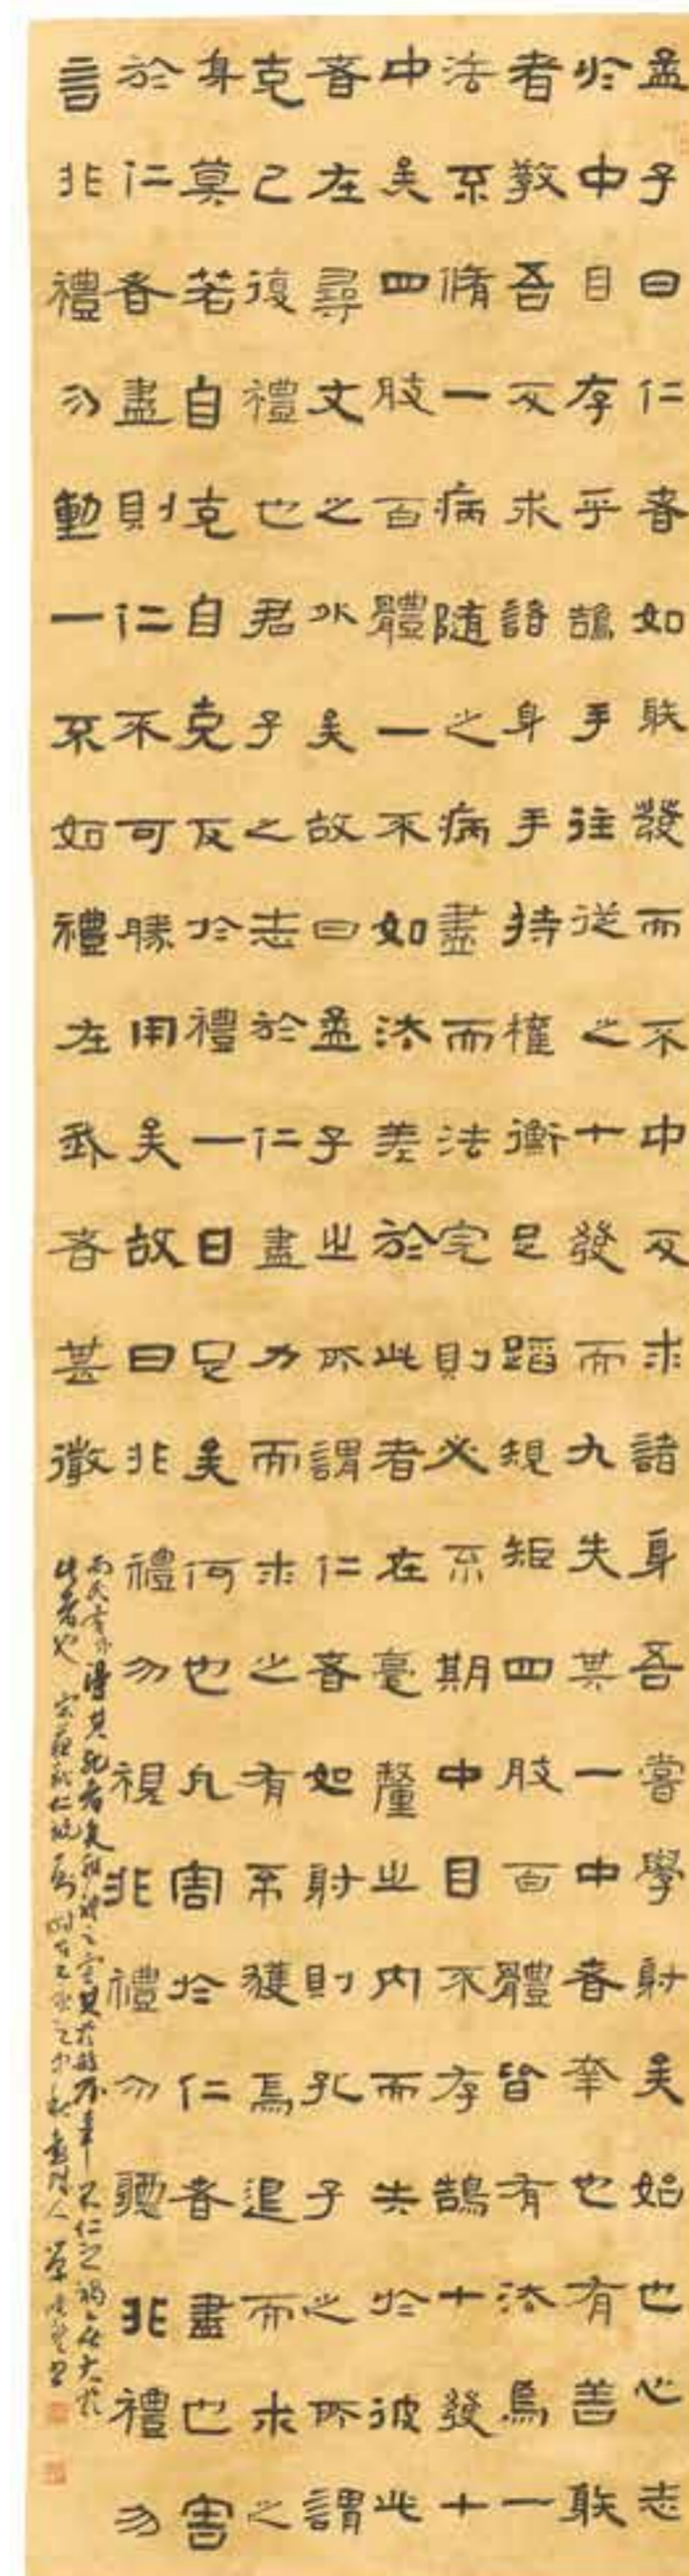 孟子曰仁者如射發而不中反求諸身吾嘗學射矣始也心志
於中目存乎鵠手往從之十發而九失其一中者幸也有善射
者教吾反求諸身手持權衡足蹈規矩四肢百體皆有法焉一
法不脩一病隨之病盡而法完則必不期中目不存鵠十發十
中矣四肢百體一不如法差於此者在毫釐之內而失於彼此
者在尋丈之外矣故曰孟子之所謂仁者如射則孔子之所謂
克己復禮也君子之志於仁盡力而求之有不獲焉退而求之
身莫若自克自克反於禮一日足矣何也凡害於仁者盡也害
於仁者盡則仁不可勝用矣故曰非禮勿視非禮勿聽非禮勿
言非禮勿動一不如禮在我者甚微
而民有不得其死者矣非禮之害甚於殺不辜不仁之禍無大於
此者也 宋蘇軾仁說